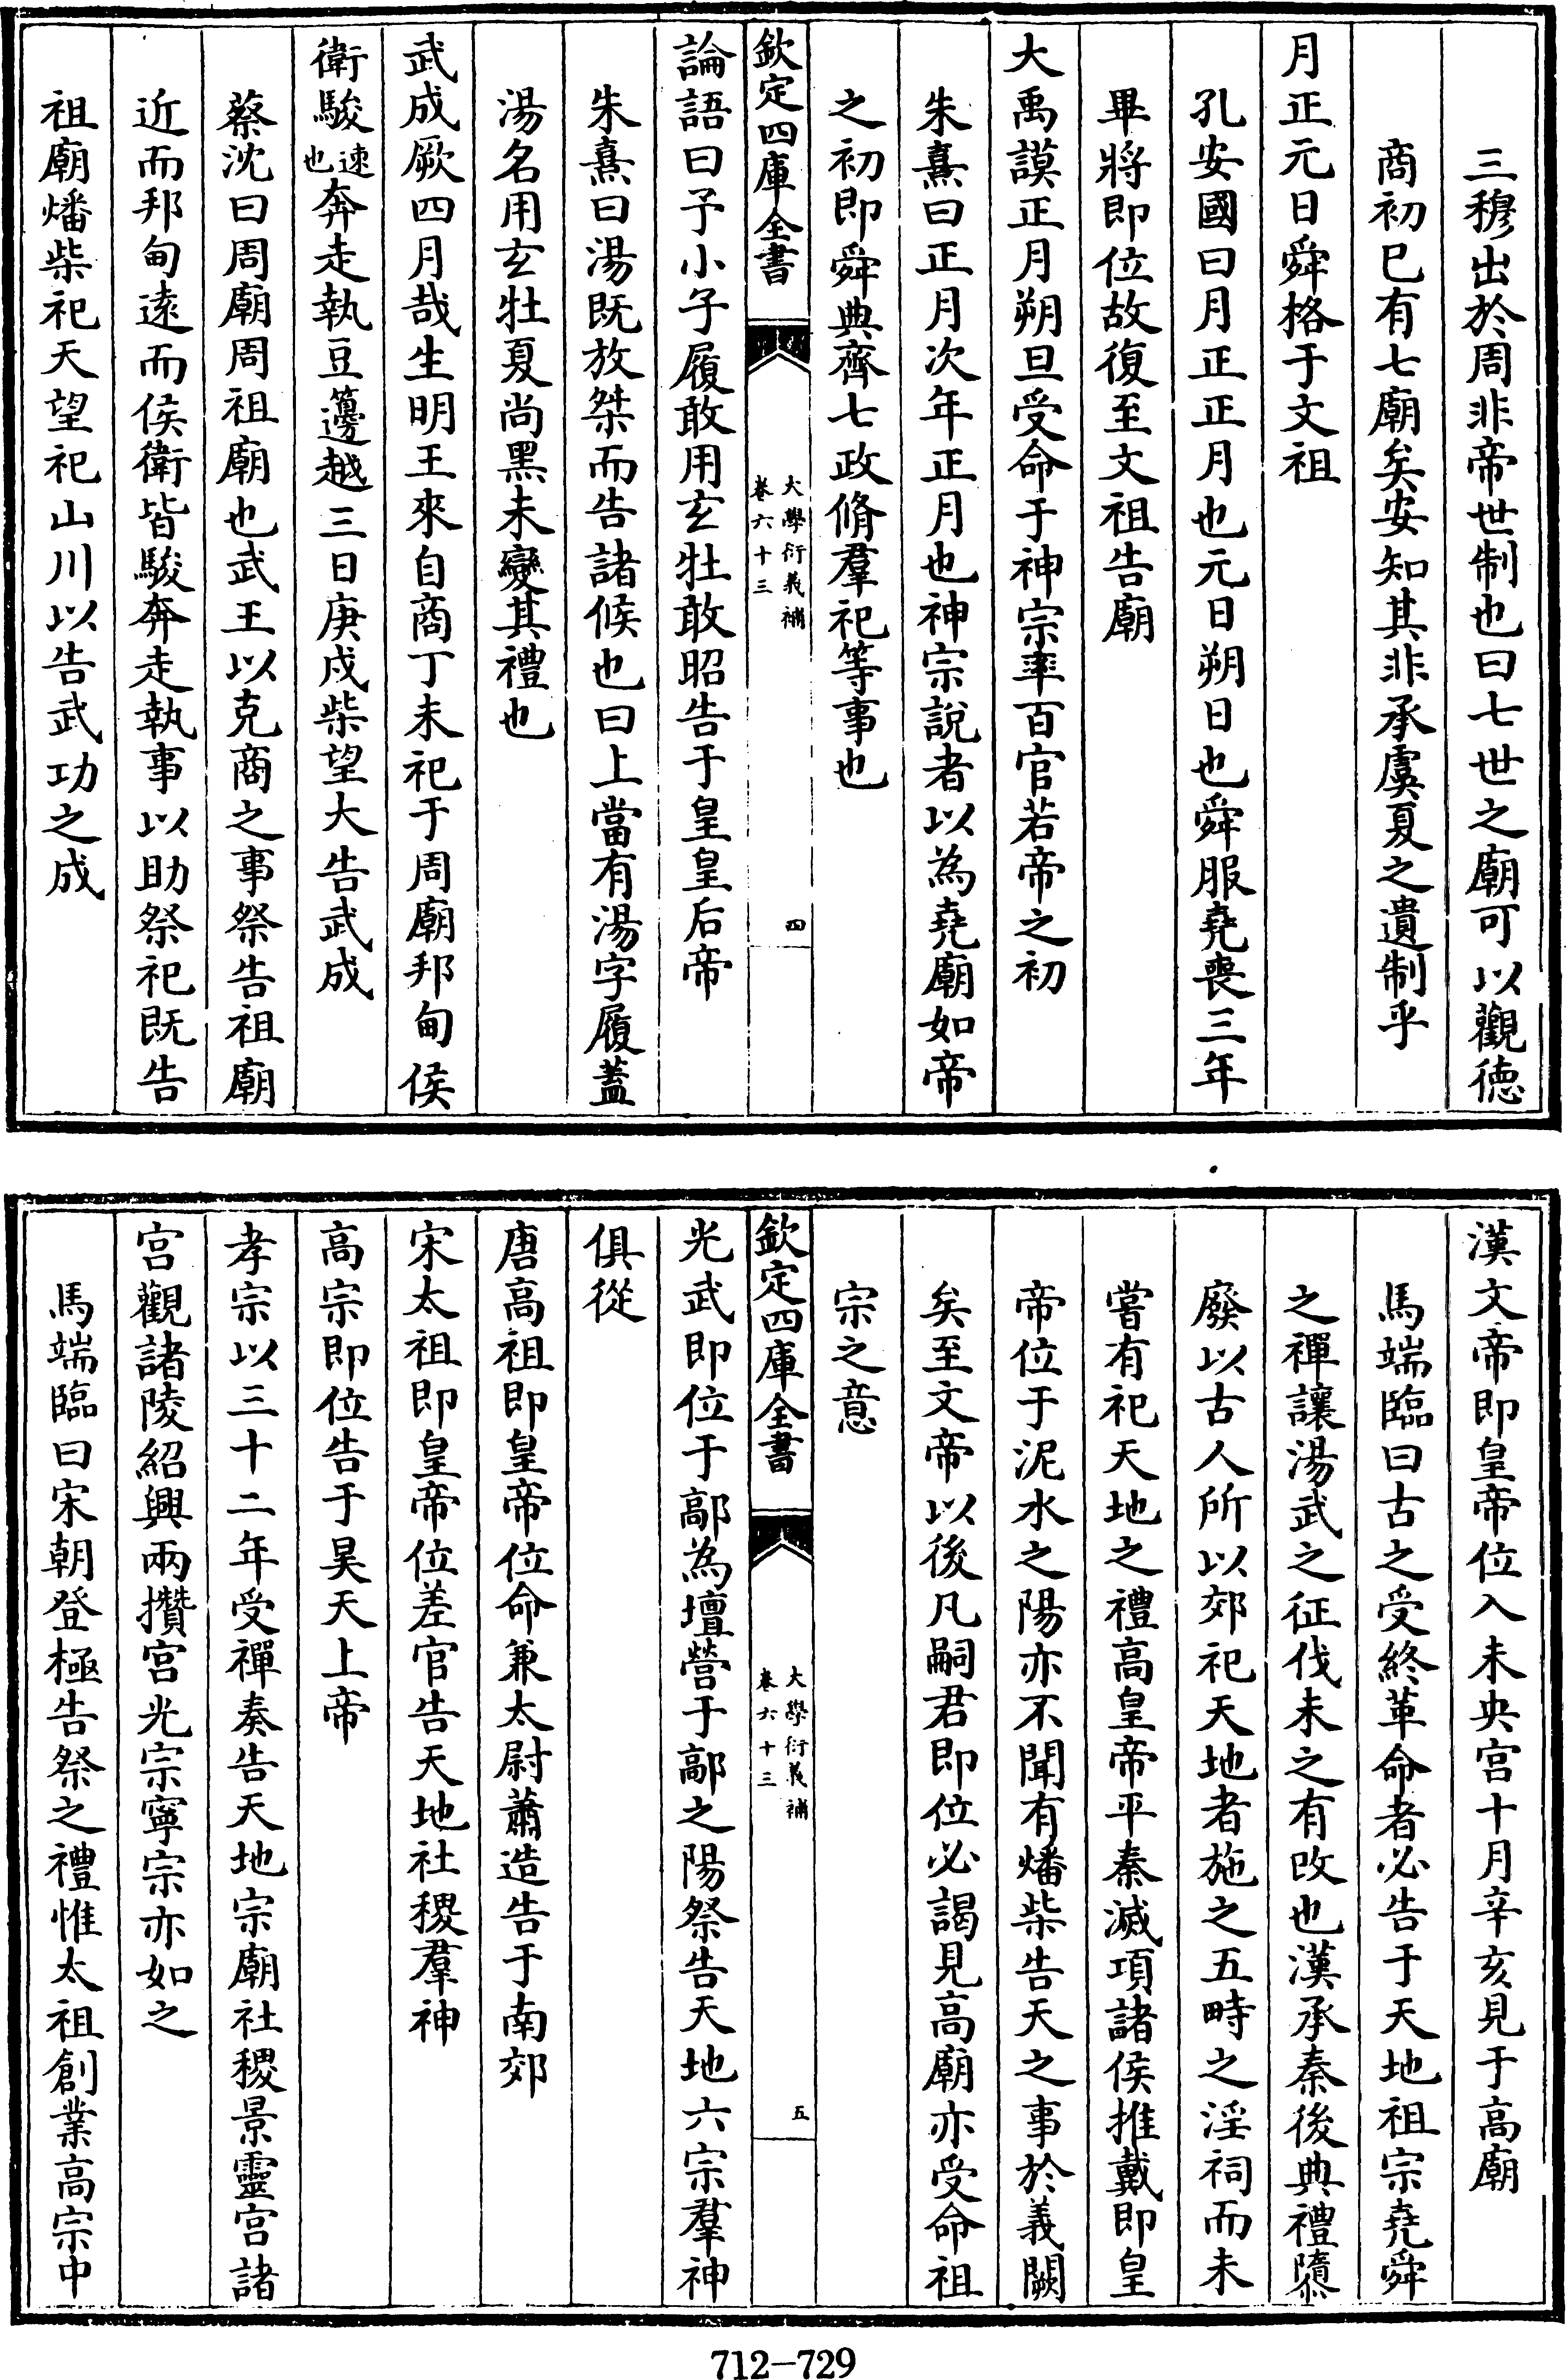 三穆出於周非帝世制也曰七世之廟可以觀徳
商初已有七廟矣安知其非承虞夏之遺制乎
月正元日舜格于文祖
孔安國曰月正正月也元日朔日也舜服堯喪三年
畢將即位故復至文祖告廟
大禹謨正月朔旦受命于神宗率百官若帝之初
朱熹曰正月次年正月也神宗說者以為堯廟如帝
之初即舜典齊七政脩羣祀等事也
欽定四庫全書
大學衍義補
卷六十三
四
論語曰予小子履敢用玄牡敢昭告于皇皇后帝
朱熹曰湯既放桀而告諸侯也曰上當有湯字履葢
湯名用玄牡夏尚黑未變其禮也
武成厥四月哉生明王來自商丁未祀于周廟邦甸侯
衛駿速也奔走執豆籩越三日庚戌柴望大告武成
蔡沈曰周廟周祖廟也武王以克商之事祭告祖廟
近而邦甸逺而侯衛皆駿奔走執事以助祭祀既告
祖廟燔柴祀天望祀山川以告武功之成
漢文帝即皇帝位入未央宫十月辛亥見于高廟
馬端臨曰古之受終革命者必告于天地祖宗堯舜
之禪讓湯武之征伐未之有改也漢承秦後典禮隳
廢以古人所以郊祀天地者施之五畤之淫祠而未
嘗有祀天地之禮高皇帝平秦滅項諸侯推戴即皇
帝位于泥水之陽亦不聞有燔柴告天之事於義闕
矣至文帝以後凡嗣君即位必謁見高廟亦受命祖
宗之意
欽定四庫全書
大學衍義補
卷六十三
五
光武即位于鄗為壇營于鄗之陽祭告天地六宗羣神
俱從
唐高祖即皇帝位命兼太尉蕭造告于南郊
宋太祖即皇帝位差官告天地社稷羣神
高宗即位告于昊天上帝
孝宗以三十二年受禪奏告天地宗廟社稷景靈宫諸
宫觀諸陵紹興兩攢宫光宗寧宗亦如之
馬端臨曰宋朝登極告祭之禮惟太祖創業高宗中
712-729